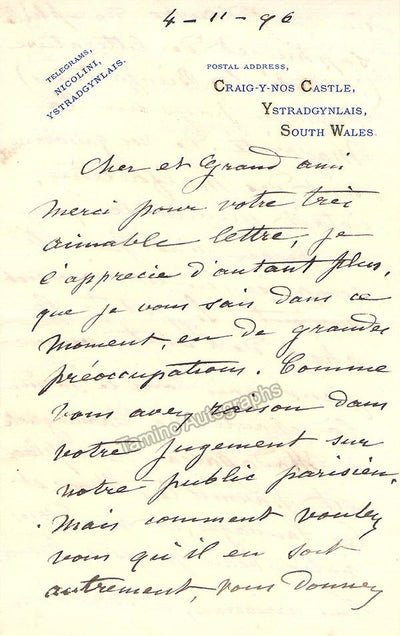 4-11-96
TELEGRAMS,
NICOLINI,
YSTRADGYNLAIS.
POSTAL ADDRESS,
CRAIG-Y-NOS CASTLE,
YSTRADGYNLAIS,
SOUTH WALES.
Cher et Grand ami
merci pour votre très
aimable lettre, je
l'apprecie d'autant plus,
que je vous sais dans ce
moment, en de grandes
préoccupations. Comme
vous avez raison dans
votre jugement sur
notre public parisien.
Mais comment voulez
vous qu'il en soit
autrement, vous donnez
Tamino Autographs